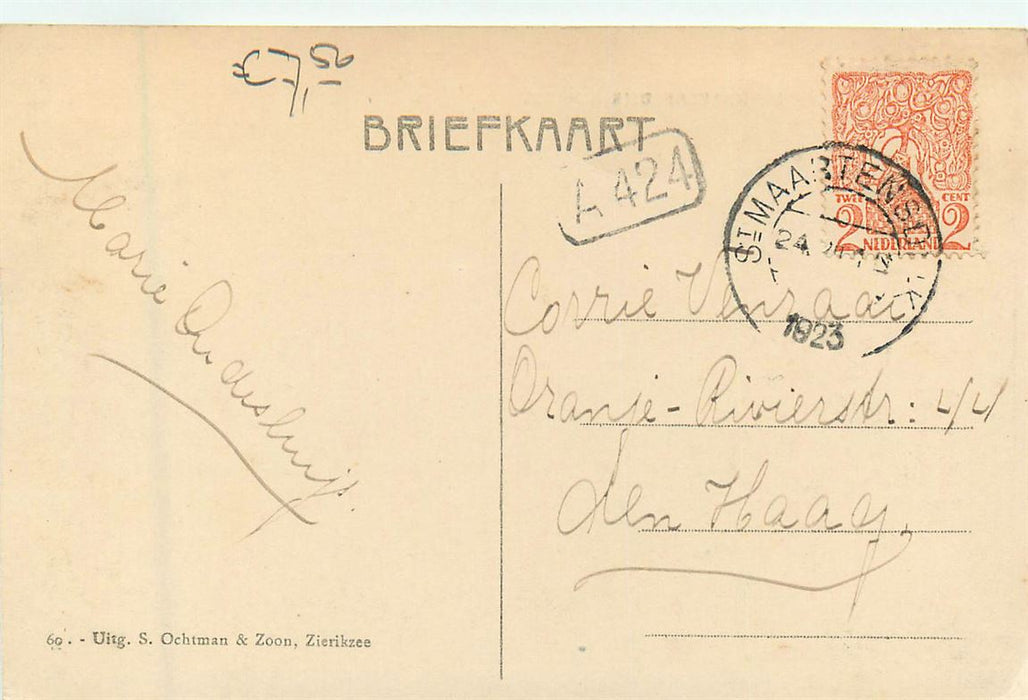 BRIEFKAART
A 424
ST MAARTENSDIJK
24
1923
TWEE CENT
2 NEDERLAND 2
Marie Oudesluijs
Corrie Venraai
Oranje-Rivierstr: 44
den Haag,
60. - Uitg. S. Ochtman & Zoon, Zierikzee